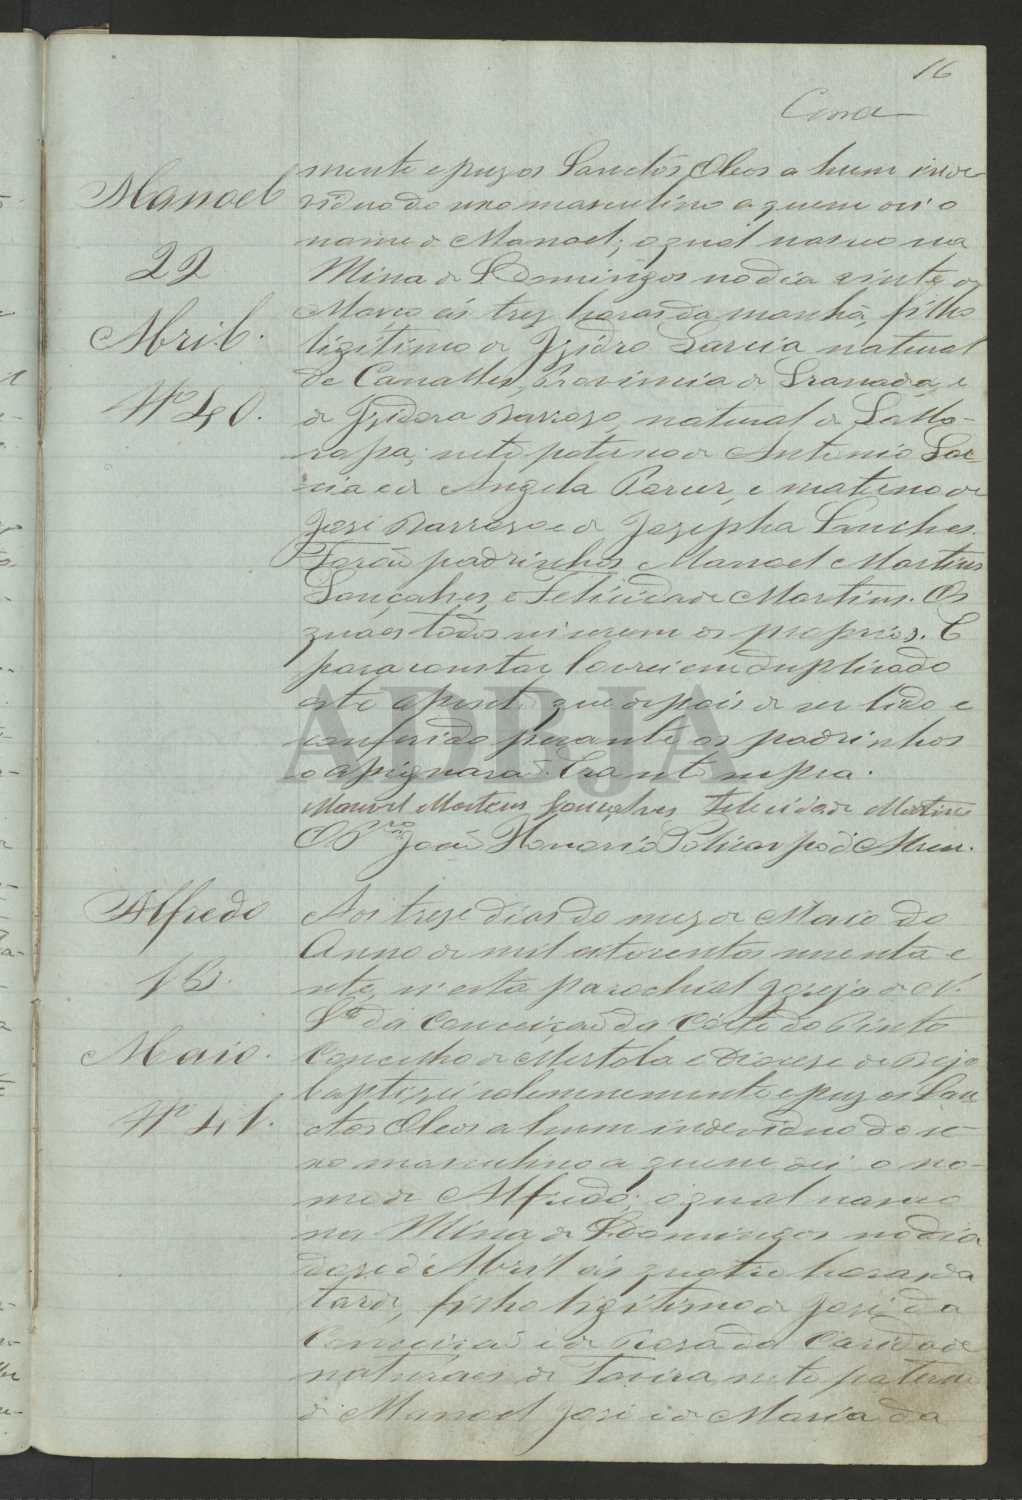 16
Manoel
22
Abril.
Nº 40.
mente e puz os Sanctos Oleos a hum indi-
viduo do sexo masculino a quem dei o
nome de Manoel, o qual nasceu na
Mina de S. Domingos no dia vinte de
Março ás trez horas da manhã, filho
legitimo de Izidro Garcia natural
de Provincia de Granada, e
de Izidora Barrozo, natural de
neto paterno de Antonio Gar-
cia e de Angela e materno de
José Barrozo e de Jozepha Sanches.
Forão padrinhos Manoel Martins
Gonçalves, e Felicidade Martins. Os
quaes todos os proprios. E
para constar lavrei em duplicado
este que depois de ser lido e
conferido perante os padrinhos
o assignarão. Era ut supra.
Manoel Martins Gonçalves Felicidade Martins
O João
Alfredo
13.
Maio.
Nº 41.
Aos treze dias do mez de Maio do
Anno de mil oitocentos noventa e
sete, n'esta parochial Igreja de N.
Srª da Conceição da Côrte do Pinto
Concelho de Mertola e Diocese de Beja
baptizei solemnemente e puz os San-
ctos Oleos a hum individuo do se-
xo masculino a quem dei o no-
me de Alfredo; o qual nasceu
na Mina de S. Domingos no dia
doze de Abril ás quatro horas da
tarde, filho legitimo de José da
Conceição e de Rosa da Caridade
naturaes de Tavira, neto paterno
de Manoel José e de Maria da
ADBJA